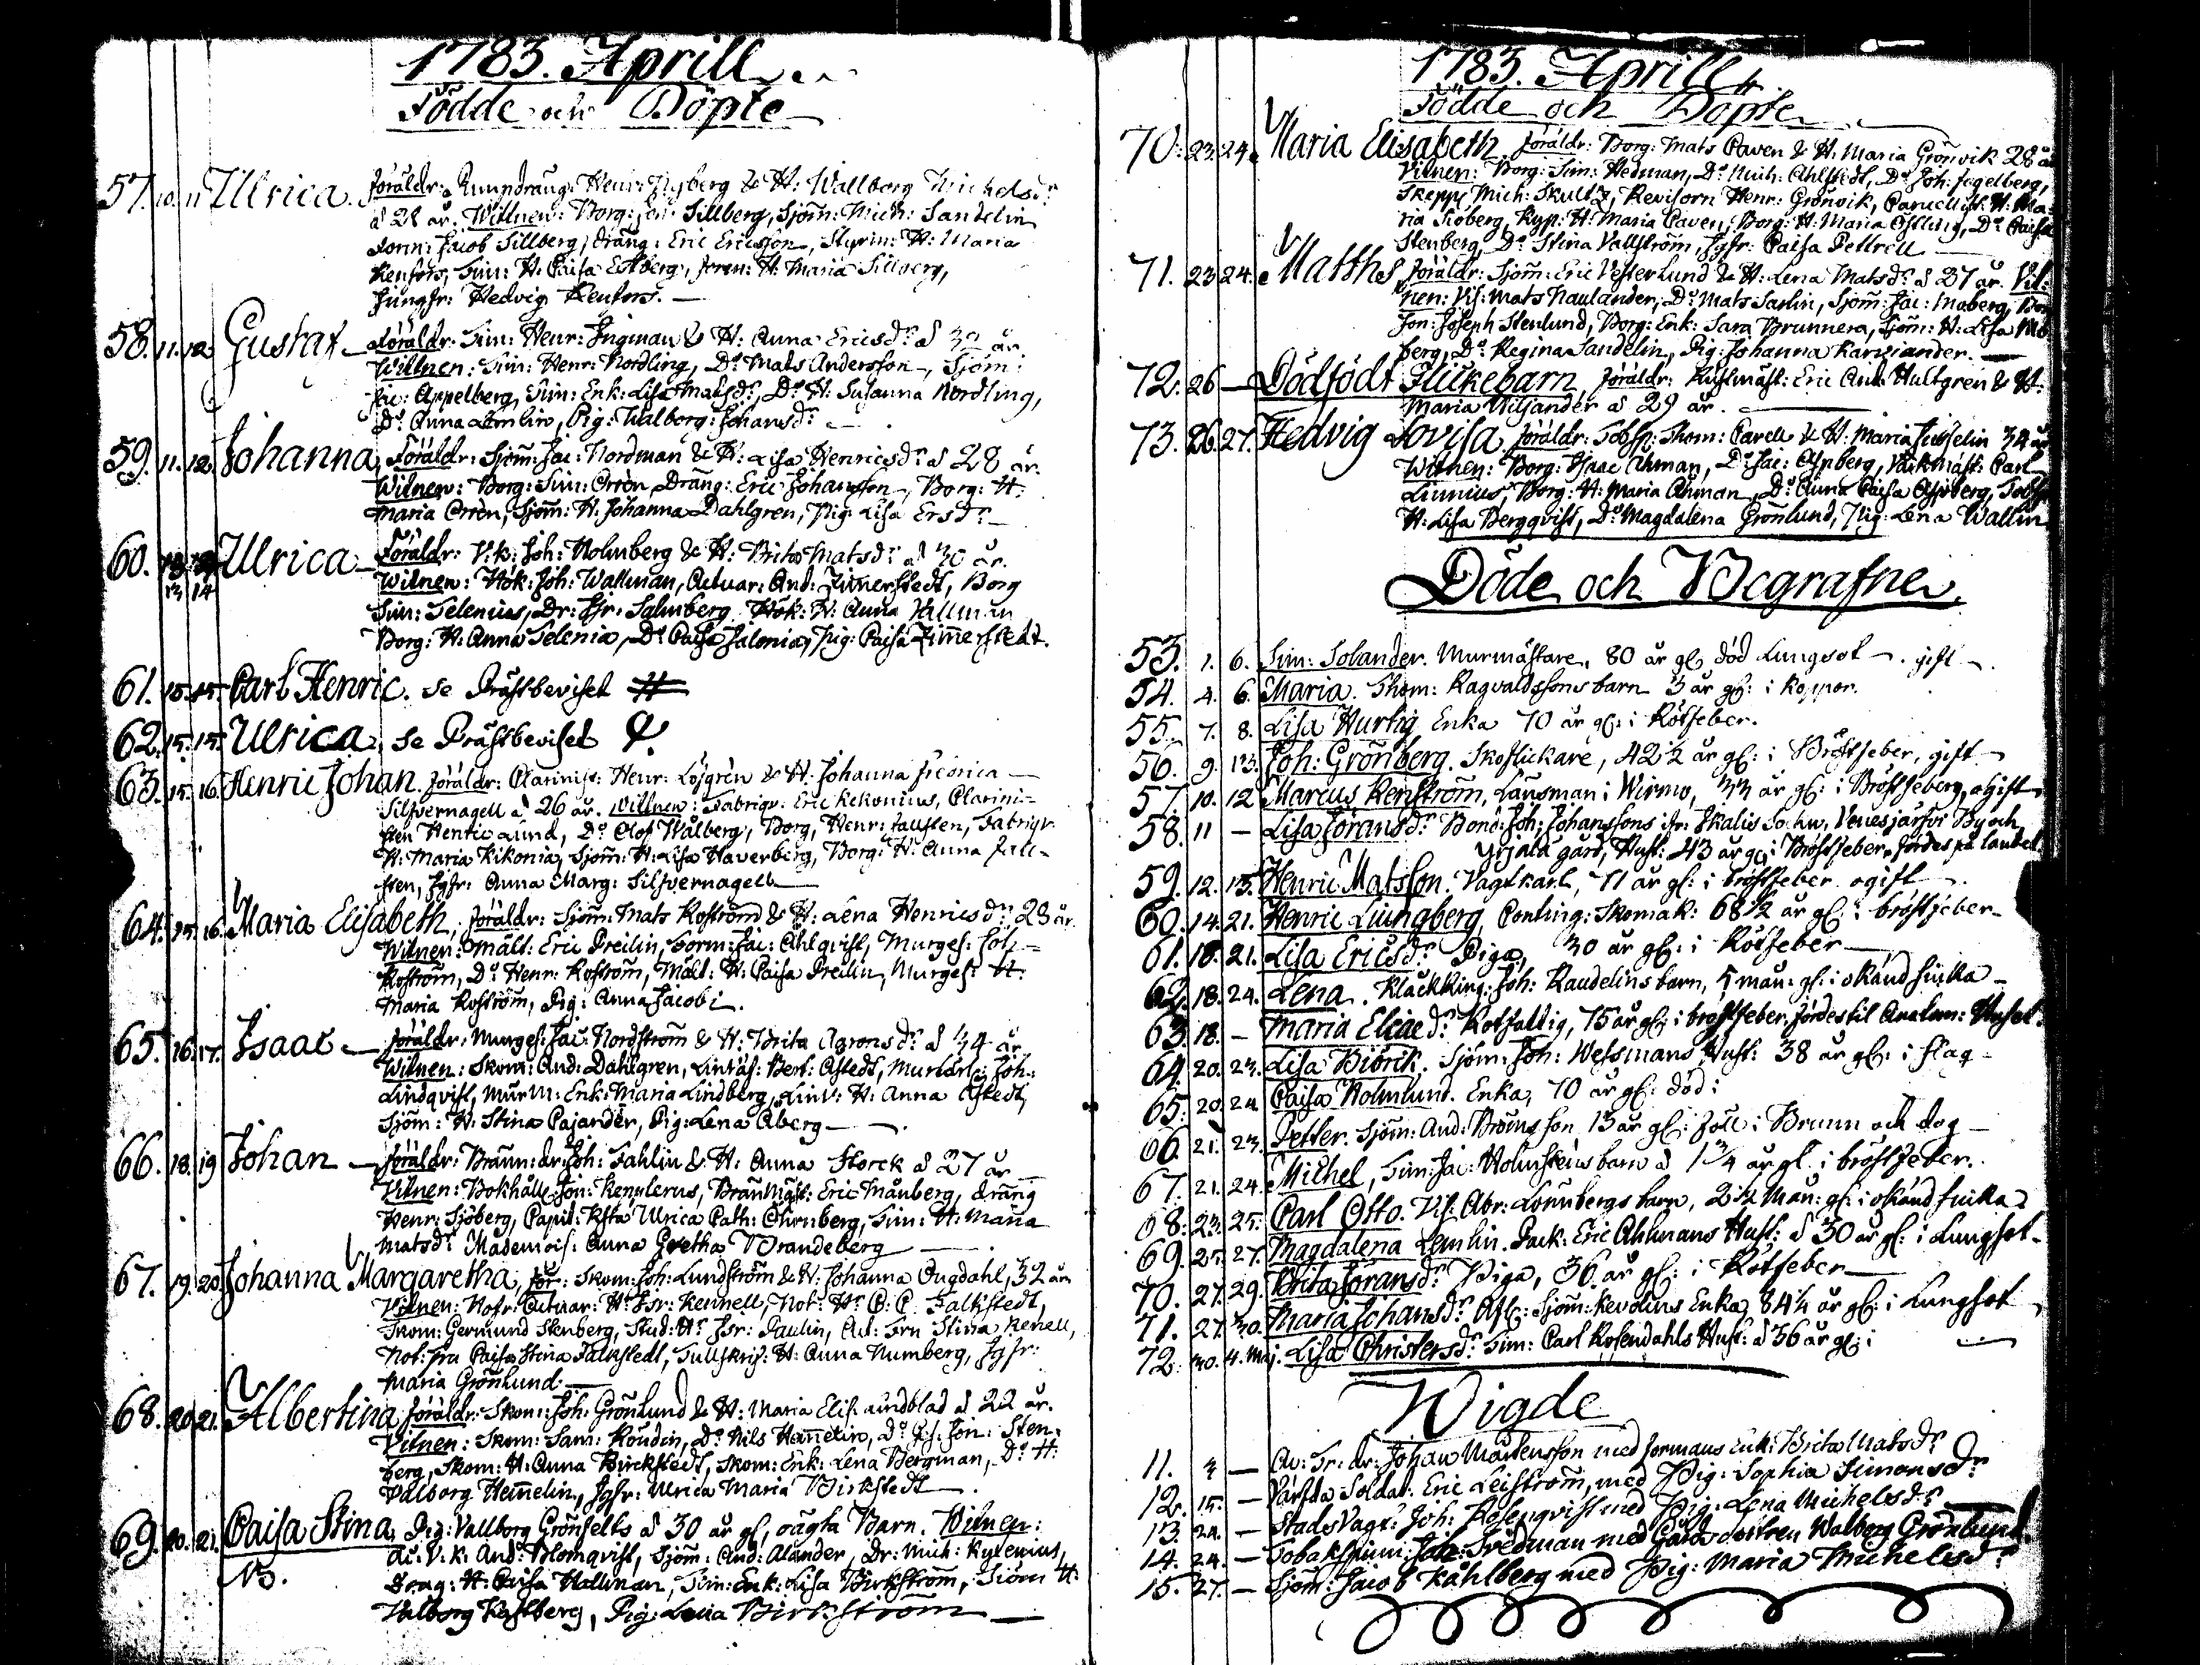 1783. Aprill
Födde och Döpte
57. 10. 11 Ulrica. Föräldr: Henr: Nyberg & H: Wallborg Michelsdr
å 28 år. Wittnen: Borg: Sillberg, Sjöm: Mich: Sandelin
Jacob Sillberg, dräng: Eric Ericsson, Styrm: H: Maria
Renfors, Tim: H: Caisa Estberg, H: Maria Sillberg,
Jungfr: Hedvig Renfors.
58. 11. 12 Gustaf Föräldr: Tim: Henr: Ingman & H: Anna Ericsdr å 32 år.
Wittnen: Tim: Henr: Nordling, Do Mats Andersson, Sjöm:
Jac: Appelberg, Tim: Enk: Lisa Matsdr, Do H: Susanna Nordling,
Do Anna Lemlin, Pig: Walborg Johansdr
59. 11. 12 Johanna, Föräldr: Sjöm: Jac: Nordman & H: Lisa Henricsdr å 28 år.
Witnen: Borg: Sim: Orrèn, Dräng: Eric Johansson, Borg: H:
Maria Orrèn, Sjöm: H: Johanna Dahlgren, Pig: Lisa Ersdr
60. Ulrica Föräldr: V.k: Joh: Holmberg & H: Brita Matsdr å 30 år.
13 14 Witnen: Hök: Joh: Wallman, Actuar: And: Zimmerstedt, Borg
Sim: Selenius, Dr: Hök: H: Anna Wallman
Borg: H: Anna Selenia, Do Caisa Salonia, Pig: Caisa Zimmerstedt.
61. 15. 15. Carl Henric. Se Prästbeviset #
62. 15. 15. Ulrica, Se Prästbeviset
63. 15. 16. Henric Johan. Föräldr: Clarinist: Henr: Löfgrèn & H: Johanna Fredrica
Silfvernagell å 26 år. Wittnen: Fabriqv: Eric Kekonius, Clarini=
sten Henric Lund, Do Olof Wålberg, Borg, Henr: Jallsten, Fabriqv.
H: Maria Kikonia, Sjöm: H: Lisa Haverberg, Borg: H: Anna Jall=
sten, Jgfr: Anna Marg: Silfvernagell
64. 15. 16. Maria Elisabeth, Föräldr: Sjöm: Mats Roström & H: Lena Henricsdr 28 år
Witnen: Mält: Eric Preilin, Jac: Ahlqvist, Murges: Joh=
Roström, Do Henr: Roström, Mält: H: Caisa Preilin, Murges: H:
Maria Roström, Pig: Anna Jacobi.
65. 16. 17. Isaac Föräldr: Murges: Jac: Nordström & H: Brita å 44 år
Witnen: Skom: And: Dahlgren, Bert: Åstedt, Murlärl: Joh:
Lindqvist, Murm: Enk: Maria Lindberg, H: Anna Åstedt,
Sjöm: H: Stina Pajander, Pig: Lena Åberg
66. 18. 19 Johan Föräldr: Bränn: dr: Joh: Fahlin & H: Anna Storck å 27 år
Vitnen: Bokhåll: Jon: Brännmäst: Eric Månberg, dräng
Henr: Sjöberg, Ulrica Cath: Öhrnberg, Tim: H: Maria
Matsdr Mademois: Anna Gretha Brandeberg
67. 19. 20 Johanna Margaretha, För: Skom: Joh: Lundström & H: Johanna Ongdahl, 32 år
Vitnen: Notr: Actuar: Hr Jsr: Rennell, Not: Hr C: C. Falkstedt,
Skom: Germund Stenberg, Stud: Hr Jsr: Paulin, Act: Fru Stina Renell,
Not: Fru Caisa Stina Falkstedt, Tullskrif: H: Anna Numberg, Jgfr:
Maria Grönlund
68. 20 21. Albertina Föräldr: Skom: Joh: Grönlund & H: Maria Elis: Lindblad å 22 år.
Vitnen: Skom: Sam: Roudin, Do Nils Hemelin, Do Jon: Sten=
berg, Skom: H: Anna Birckstedt, Skom: Enk: Lena Bergman, Do H:
Valborg Hemelin, Jgfr: Ulrica Maria Birkstedt
69. 20. 21. Caisa Stina, Pig: Vallborg Grönfelts å 30 år gl, oägta Barn. Witnen:
NB. Ac: V. k: And: Blomqvist, Sjöm: And: Alander, Dr: Mich: Kyrenius,
H: Caisa Hallman, Tim: Enk: Lisa Birkström, Sjöm H:
Valborg Kastberg, Pig: Lena Birkström
1783. Aprill
Födde och Döpte
70. 23. 24. Maria Elisabeth Föräldr: Borg: Mats Caven & H: Maria Grönvik 28 år
Vitnen: Borg: Sim: Hedman, Do Mich: Ahlstedt, Do Joh: Fogelberg,
Skepp: Mich: Skultz, Revisorn Henr: Grönvik, H: Ma=
ria Sioberg, H: Maria Caven, Borg: H: Maria Östling, Do Caisa
Stenberg, Do Stina Vallström, Jgfr: Caisa Pettrell
71. 23 24. Matths Föräldr: Sjöm: Eric Vesterlund & H: Lena Matsdr å 37 år. Vit=
nen: Vis: Mats Naulander, Do Mats Sarlin, Sjöm: Jac: Moberg, Bon
Jon: Joseph Stenlund, Borg: Enk: Sara Brunnera, Sjöm: H: Lisa Mo=
berg, Do Regina Sandelin, Pig: Johanna
72. 26 — Dödfödt Flickebarn Föräldr: Rustmäst: Eric And: Hultgren & H:
Maria Wiljander å 29 år.
73. 26. 27. Hedvig Lovisa Föräldr: Tobsp: Thom: Carell & H: Maria 34 år
Witnen: Borg: Isaac Åhman, Do Jac: Aspberg, Värkmäst: Carl
Linnius, Borg: H: Maria Åhman, Do Anna Caisa Aspberg, Tobsp
H: Lisa Bergqvist, Do Magdalena Grönlund, Pig: Lena Wallin
Döde och Begrafne
53. 1. 6. Sim: Solander. Murmästare, 80 år gl: död Lungsot. gift
54. 4. 6. Maria. Thom: Ragvaldssons barn 3 år gl: i koppor.
55. 7. 8. Lisa Hurtig Enka 70 år gl: i Rötfeber.
56. 9. 13. Joh: Grönberg. Skoflickare, 42½ år gl: i Bröstfeber, gift
57. 10. 12 Marcus Renström, Länsman i Wirmo, 33 år gl: i Bröstfeber, ogift
58. 11 — Lisa Jöransdr Bond: Joh: Johanssons ifr: Ikalis Sokn, Venesjärfvi By och
Yrjälä gård, Hust: 43 år gl: i Bröstfeber, fördes på landet
59. 12. 13. Henric Matsson. Vagtkarl, 71 år gl: i bröstfeber ogift
60. 14. 21. Henric Liungberg, Conting: Skomak: 68½ år gl: i bröstfeber
61. 18. 21. Lisa Ericsdr Piga, 30 år gl: i Rötfeber
62. 18. 24. Lena. Joh: Raudelins barn, 5 mån: gl: i okänd siuka
63. 18. — Maria Eliaedr Rotfattig, 75 år gl: i bröstfeber, fördes til Anatom: Huset.
64. 20. 23. Lisa Biörck. Sjöm: Joh: Wessmans Hust: 38 år gl: i slag
65. 20. 24 Caisa Holmlund. Enka, 70 år gl: död:
66. 21. 23. Petter. Sjöm: And: 13 år gl: föll i Brunn och dog
67. 21. 24. Michel, Tim: Jac: Holmsteins barn å 1¾ år gl. i bröstfeber.
68. 23. 25. Carl Otto. Vis: Abr: Lönnbergs barn, 2½ Mån: gl: i okänd siuka
69. 25. 27. Magdalena Lemlin. Pack: Eric Ahlmans Hust: å 30 år gl: i Lungsot
70. 27. 29. Brita Jöransdr Piga, 36 år gl: i Rötfeber
71. 27. 30. Maria Johansdr Sjöm: Enka, 84¼ år gl: i Lungsot
72. 30. 4. Maj. Lisa Christersdr Tim: Carl Rosendahls Hust: å 36 år gl: i
Wigde
11. 3 — Johan Mårtensson med Enk: Brita Matsdr
12. 15. — Värfda Soldat: Eric Leiström, med Pig: Sophia Simonsdr
13. 24. — StadsVagt: Joh: Rosenqvist med Pig: Lena Michelsdr
14. 24. — Tobakspinn: Joh: Fredman med Gårdsdottren Walborg Grönlund.
15. 27. — Sjöm: Jacob Kåhlberg med Pig: Maria Michelsdr